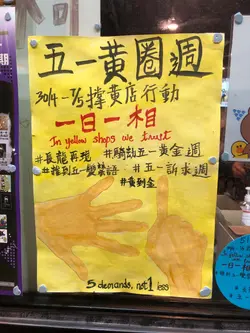 五一黃圈週
30/4 - 7/5 撐黃店行動
一日一相
In yellow shops we trust
#長龍再現 #騎劫五一黃金週
#撐到五一變禁語 #五一訴求週
#黃到金
5 demands, not 1 less
一日一相